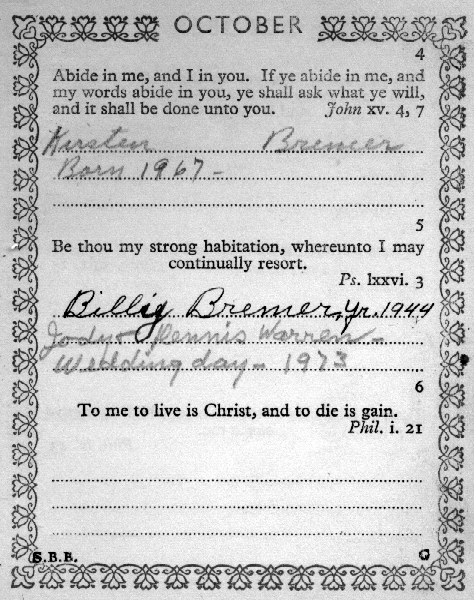 OCTOBER
4
Abide in me, and I in you. If ye abide in me, and
my words abide in you, ye shall ask what ye will,
and it shall be done unto you. John xv. 4, 7
Kirsten Bremer
Born 1967-
5
Be thou my strong habitation, whereunto I may
continually resort.
Ps. lxxvi. 3
Billig Bremer, Yr. 1944
Jody + Dennis Warren-
Wedding day- 1973
6
To me to live is Christ, and to die is gain.
Phil. i. 21
S.B.B. G